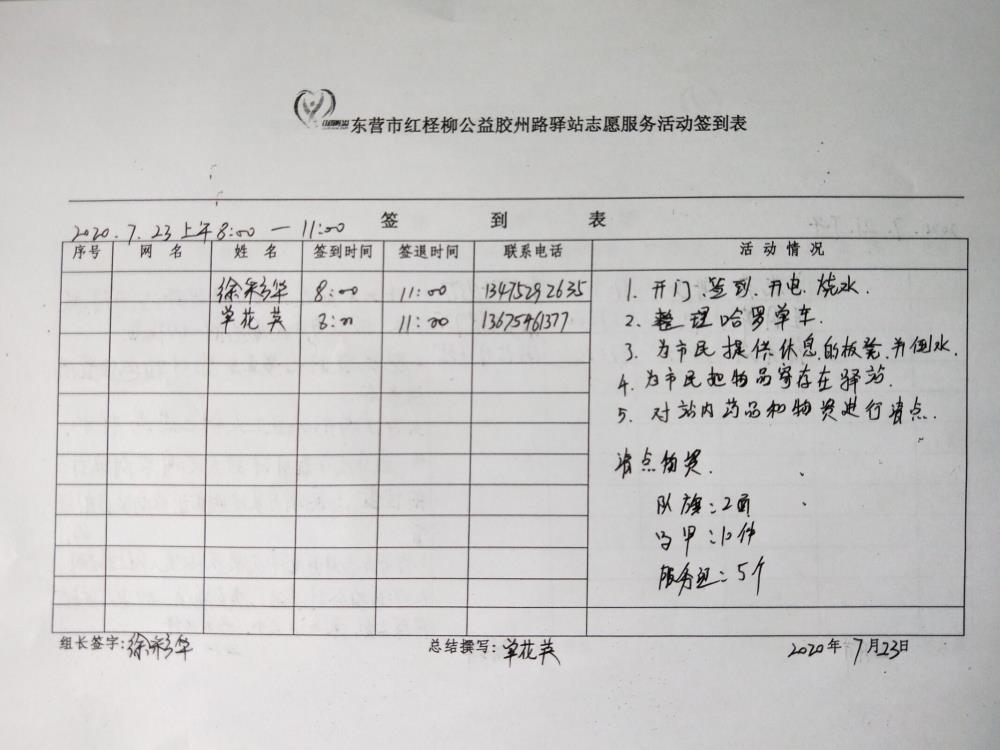 东营市红柽柳公益胶州路驿站志愿服务活动签到表
签 到 表
2020.7.23上午8:00—11:00
序号 网名 姓名 签到时间 签退时间 联系电话 活动情况
徐彩华 8:00 11:00 13475292635
单花英 8:00 11:00 13675461377
1. 开门、签到、开电、烧水.
2. 整理哈罗单车.
3. 为市民提供休息的板凳,并倒水.
4. 为市民把物品寄存在驿站.
5. 对站内药品和物资进行清点.
清点物资.
队旗:2面
马甲:10件
服务包:5个
组长签字:徐彩华 总结撰写:单花英 2020年7月23日